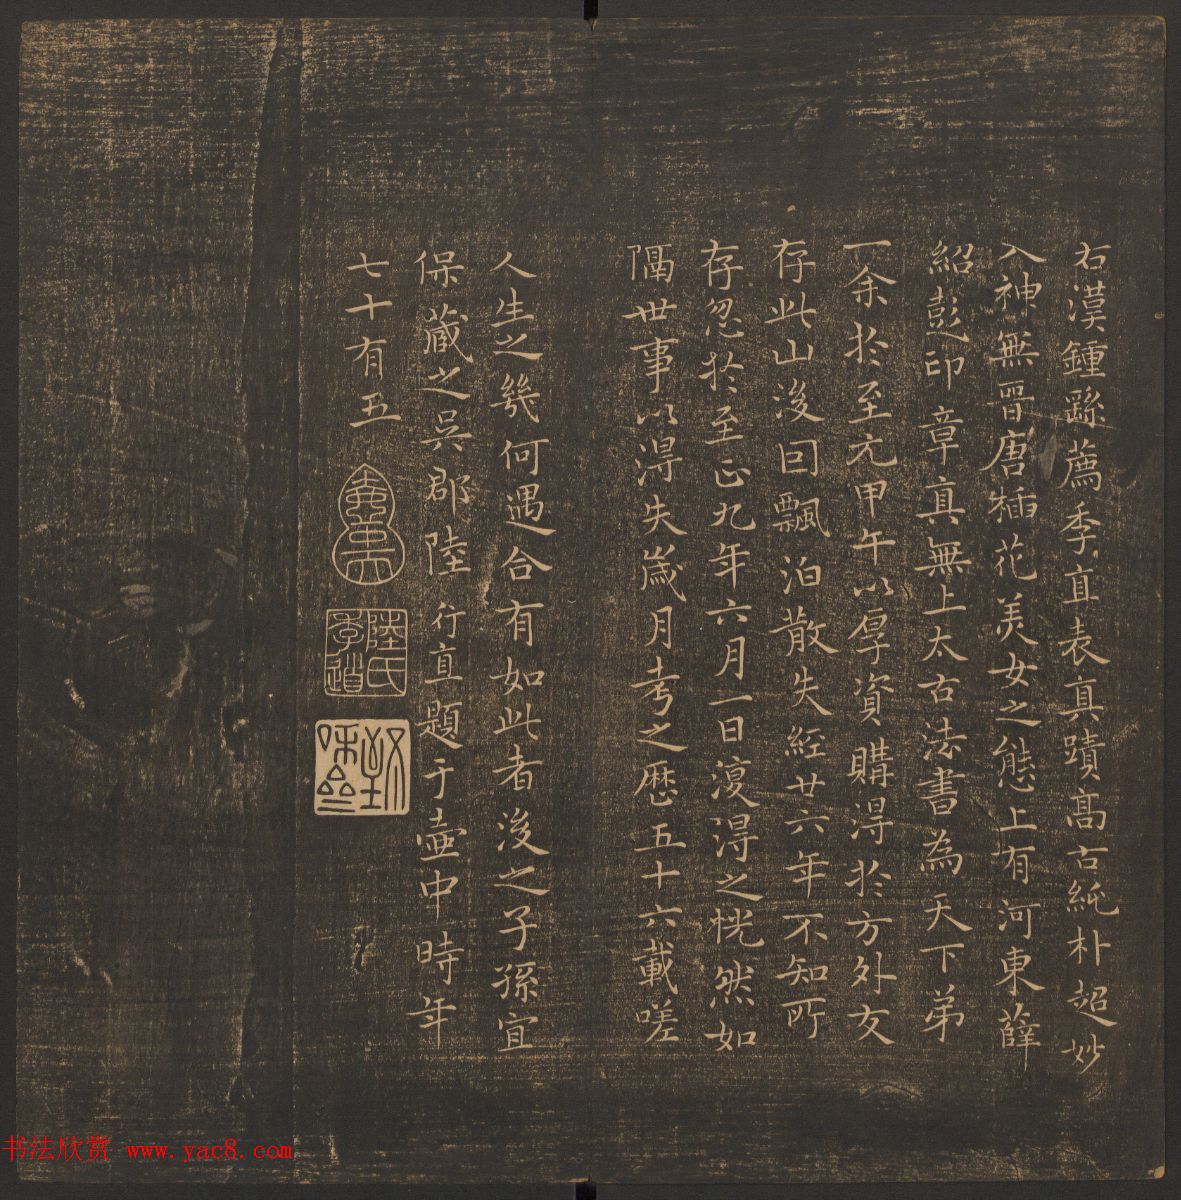 右漢鍾繇薦季直表真蹟高古純朴超妙
入神無晋唐插花美女之態上有河東薛
紹彭印章真無上太古法書為天下弟
一余於至元甲午以厚資購得於方外友
存此山後囙飄泊散失經廿六年不知所
存忽於至正九年六月一日復得之恍然如
隔世事以得失歲月考之歷五十六載嗟
人生之幾何遇合有如此者後之子孫宜
保藏之吳郡陸行直題于壷中時年
七十有五
陸氏季道
书法欣赏 www.yac8.com